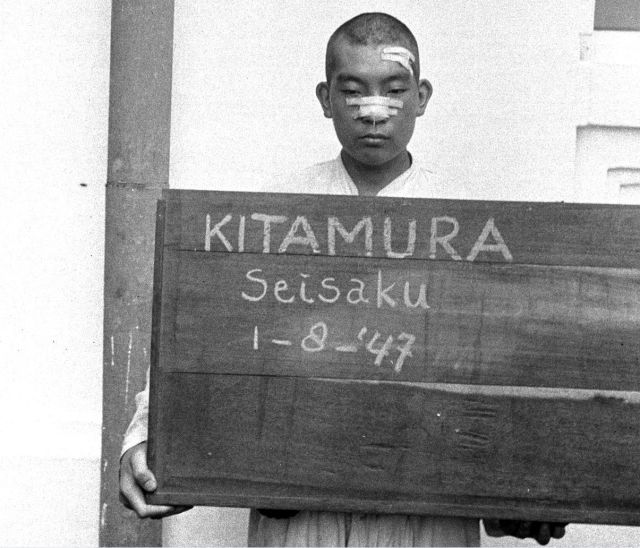 KITAMURA
Seisaku
1-8-'47